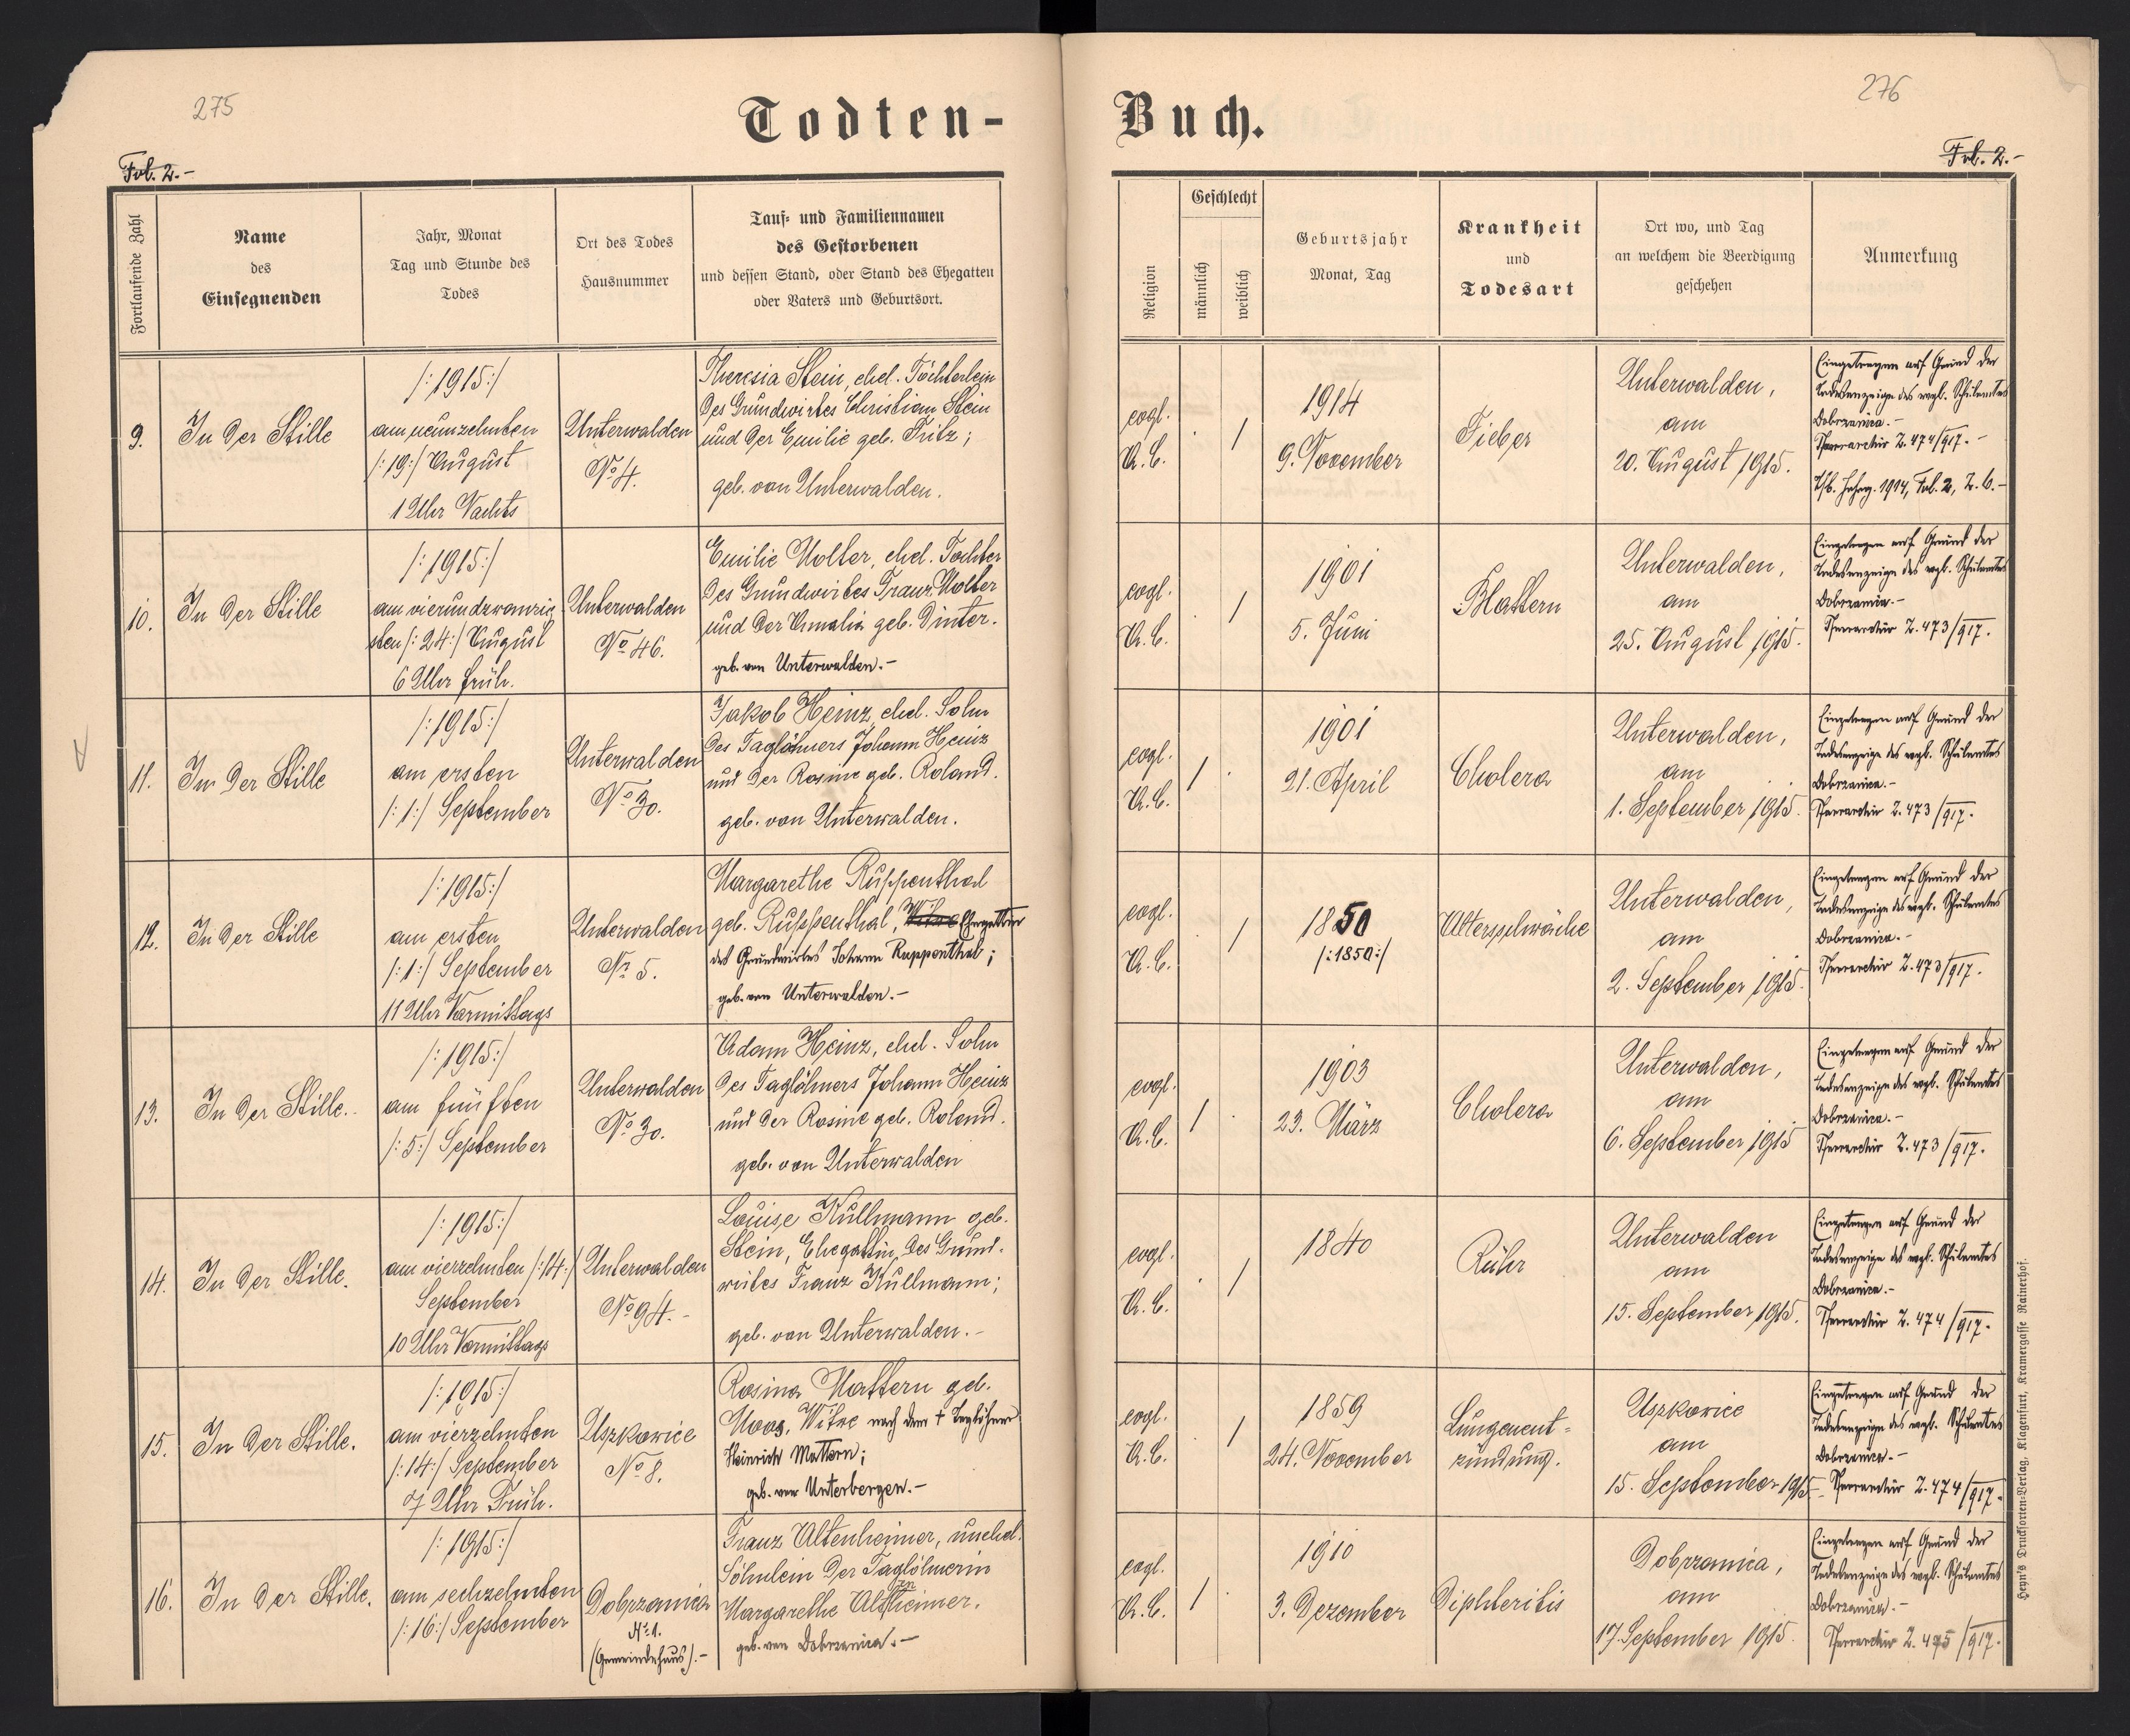 275
Todten-
Fol. 2.-
Fortlaufende Zahl
Name
des
Einsegnenden
Jahr, Monat
Tag und Stunde des
Todes
Ort des Todes
Hausnummer
Tauf- und Familiennamen
des Gestorbenen
und dessen Stand, oder Stand des Ehegatten
oder Vaters und Geburtsort.
9.
In der Stille
/:1915:/
am neunzehnten
/:19:/ August
1 Uhr Nachts
Unterwalden
No 4.
Theresia Stein, ehel. Töchterlein
des Grundwirtes Christian Stein
und der Emilie geb. Fritz;
geb. von Unterwalden.
10.
In der Stille
/:1915:/
am vierundzwanzig
sten /:24:/ August
6 Uhr früh.
Unterwalden
No 46.
Emilie Molter, ehel. Tochter
des Grundwirtes Franz Molter
und der Amalia geb. Dinter.
geb. von Unterwalden.-
11.
In der Stille
/:1915:/
am ersten
/:1:/ September
Unterwalden
No 30.
Jakob Heinz, ehel. Sohn
des Taglöhners Johann Heinz
und der Rosine geb. Roland.
geb. von Unterwalden.
12.
In der Stille
/:1915:/
am ersten
/:1:/ September
11 Uhr Vormittags
Unterwalden
No 5.
Margarethe Ruppenthal
geb. Ruppenthal, Witwe Ehegattin
des Grundwirtes Johann Ruppenthal;
geb. von Unterwalden.-
13.
In der Stille.
/:1915:/
am fünften
/:5:/ September
Unterwalden
No 30.
Adam Heinz, ehel. Sohn
des Taglöhners Johann Heinz
und der Rosine geb. Roland.
geb. von Unterwalden
14.
In der Stille.
/:1915:/
am vierzehnten /:14:/
September
10 Uhr Vormittags
Unterwalden
No 94.-
Louise Kullmann geb.
Stein, Ehegattin des Grund-
wirtes Franz Kullmann;
geb. von Unterwalden.-
15.
In der Stille.
/:1915:/
am vierzehnten
/:14:/ September
7 Uhr Früh.
Uszkowice
No 8.
Rosina Mattern geb.
Moos, Witwe nach dem + Taglöhner
Heinrich Mattern;
geb. von Unterbergen.-
16.
In der Stille.
/:1915:/
am sechzehnten
/:16:/ September
Dobrzanica
No 1.
(Gemeindehaus).-
Franz Altenheimer, unehel.
Söhnlein der Taglöhnerin
Margarethe Altenheimer.
geb. von Dobrzanica.-
276
Buch.
Fol. 2.-
Religion
Geschlecht
männlich
weiblich
Geburtsjahr
Monat, Tag
Krankheit
und
Todesart
Ort wo, und Tag
an welchem die Beerdigung
geschehen
Anmerkung
evgl.
A.C.
/
1914
9. November
Fieber
Unterwalden,
am
20. August 1915.
Eingetragen auf Grund der
Todesanzeige des evgl. Schulamtes
Dobrzanica.-
Pfarrarchiv Z. 474/917.-
Tfb. Jahrg. 1914, Fol. 2, Z. 6.-
evgl.
A.C.
/
1901
5. Juni
Blattern
Unterwalden,
am
25. August 1915.
Eingetragen auf Grund der
Todesanzeige des evgl. Schulamtes
Dobrzanica.-
Pfarrarchiv Z. 473/917.
evgl.
A.C.
/
1901
21. April
Cholera
Unterwalden,
am
1. September 1915.
Eingetragen auf Grund der
Todesanzeige des evgl. Schulamtes
Dobrzanica.-
Pfarrarchiv Z. 473/917.
evgl.
A.C.
/
1850
/:1850:/
Altersschwäche
Unterwalden,
am
2. September 1915.
Eingetragen auf Grund der
Todesanzeige des evgl. Schulamtes
Dobrzanica.-
Pfarrarchiv Z. 473/917.
evgl.
A.C.
/
1903
23. März
Cholera
Unterwalden,
am
6. September 1915
Eingetragen auf Grund der
Todesanzeige des evgl. Schulamtes
Dobrzanica.-
Pfarrarchiv Z. 473/917.
evgl.
A.C.
/
1840
Ruhr
Unterwalden
am
15. September 1915.
Eingetragen auf Grund der
Todesanzeige des evgl. Schulamtes
Dobrzanica.-
Pfarrarchiv Z. 474/917.
evgl.
A.C.
/
1859
24. November
Lungenent-
zündung.
Uszkowice
am
15. September 1915
Eingetragen auf Grund der
Todesanzeige des evgl. Schulamtes
Dobrzanica.-
Pfarrarchiv Z. 474/917.
evgl.
A.C.
/
1910
3. Dezember
Diphteritis
Dobrzanica,
am
17. September 1915.
Eingetragen auf Grund der
Todesanzeige des evgl. Schulamtes
Dobrzanica.-
Pfarrarchiv Z. 475/917.
Heyn's Drucksorten-Verlag, Klagenfurt, Kramergasse Rainerhof.